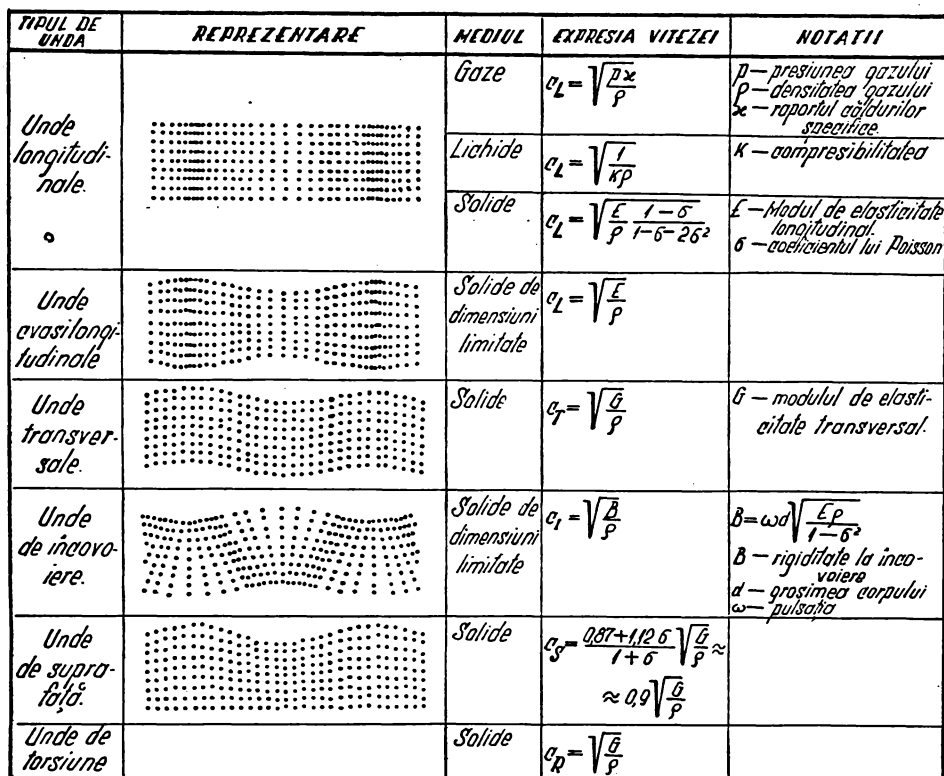 TIPUL DE
UNDA
REPREZENTARE
MEDIUL
EXPRESIA VITEZEI
NOTATII
Unde
longitudi-
nale.
Gaze
c_L = √(pϰ/ρ)
p — presiunea gazului
ρ — densitatea gazului
ϰ — raportul căldurilor
specifice.
Lichide
c_L = √(1/Kρ)
K — compresibilitatea
Solide
c_L = √(E/ρ (1-σ)/(1-σ-2σ²))
E — Modul de elasticitate
longitudinal.
σ — coeficientul lui Poisson
Unde
cvasilongi-
tudinale
Solide de
dimensiuni
limitate
c_L = √(E/ρ)
Unde
transver-
sale.
Solide
c_T = √(G/ρ)
G — modulul de elasti-
citate transversal.
Unde
de încovo-
iere.
Solide de
dimensiuni
limitate
c_I = √(B/ρ)
B = ωd√(Eρ/(1-σ²))
B — rigiditate la înco-
voiere
d — grosimea corpului
ω — pulsația
Unde
de supra-
față.
Solide
c_S = (0,87+1,12σ)/(1+σ) √(G/ρ) ≈
≈ 0,9√(G/ρ)
Unde de
torsiune
Solide
c_R = √(G/ρ)